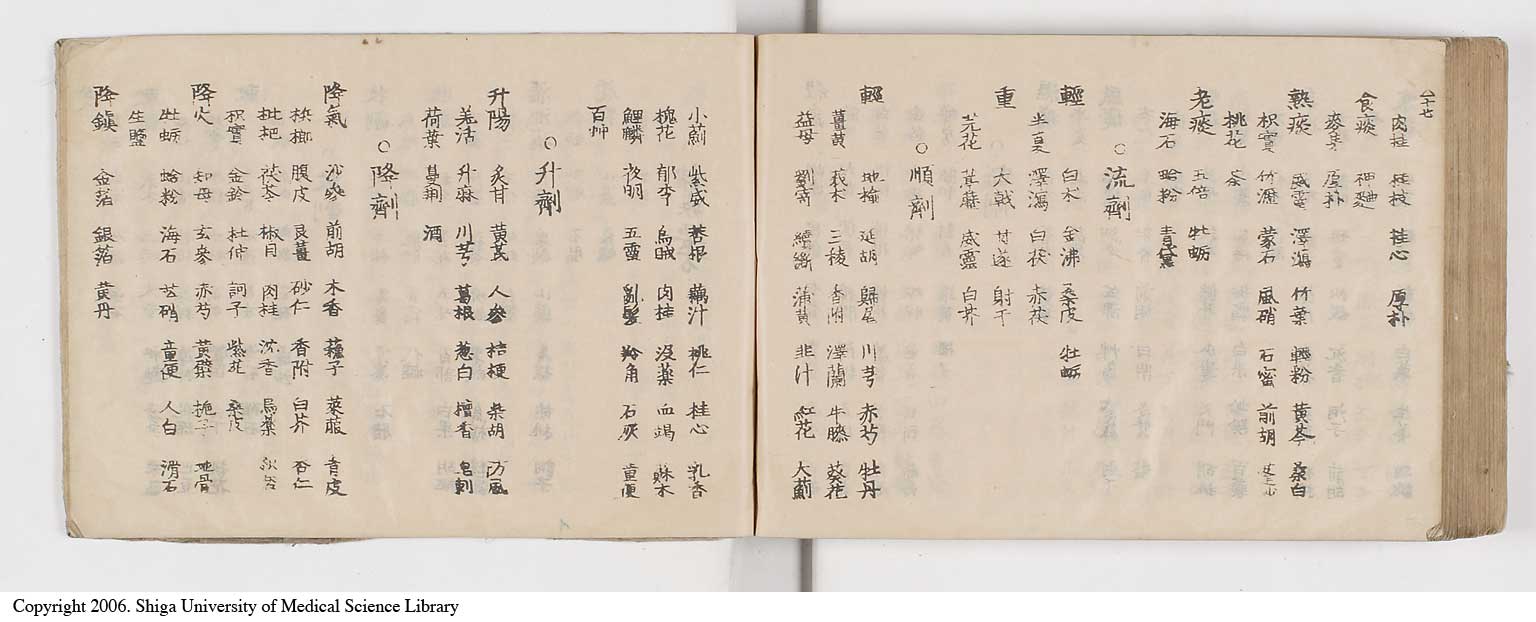 八十七
肉桂 桂枝 桂心 厚朴
食痰 神麯
麥芽 厚朴
熱痰 威靈 澤瀉 竹葉 輕粉 黄芩 桑白
枳實 竹瀝 蒙石 風硝 石蜜 前胡
桃花 茶
老痰 五倍 牡蛎
海石 蛤粉 青黛
○流劑
輕 白朮 金沸 桑皮 牡蛎
半夏 澤瀉 白茯 赤茯
重 大戟 甘遂 射干
芫花 葶藶 威靈 白芥
○順劑
輕 地楡 延胡 歸尾 川芎 赤芍 牡丹
薑黄 莪朮 三棱 香附 澤蘭 牛膝 葵花
益母 劉寄 續斷 蒲黄 韭汁 紅花 大薊
小薊 紫威 茜根 藕汁 桃仁 桂心 乳香
槐花 郁李 烏賊 肉桂 没藥 血竭 蘇木
鯉鱗 夜明 五靈 亂髪 羚角 石灰 童便
百艸
○升劑
升陽 炙甘 黄芪 人參 桔梗 柴胡 防風
羌活 升麻 川芎 葛根 葱白 檀香 皂刺
荷葉 萆薢 酒
○降劑
降氣 沙參 前胡 木香 蘓子 萊菔 青皮
梹榔 腹皮 良薑 砂仁 香附 白芥 杏仁
枇杷 茯苓 椒目 肉桂 沈香 烏藥
枳實 金鈴 杜仲 訶子 紫菀 桑皮
降火 知母 玄參 赤芍 黄蘗 梔子 地骨
牡蛎 蛤粉 海石 芒硝 童便 人白 滑石
生鹽
降鎭 金箔 銀箔 黄丹
Copyright 2006. Shiga University of Medical Science Library